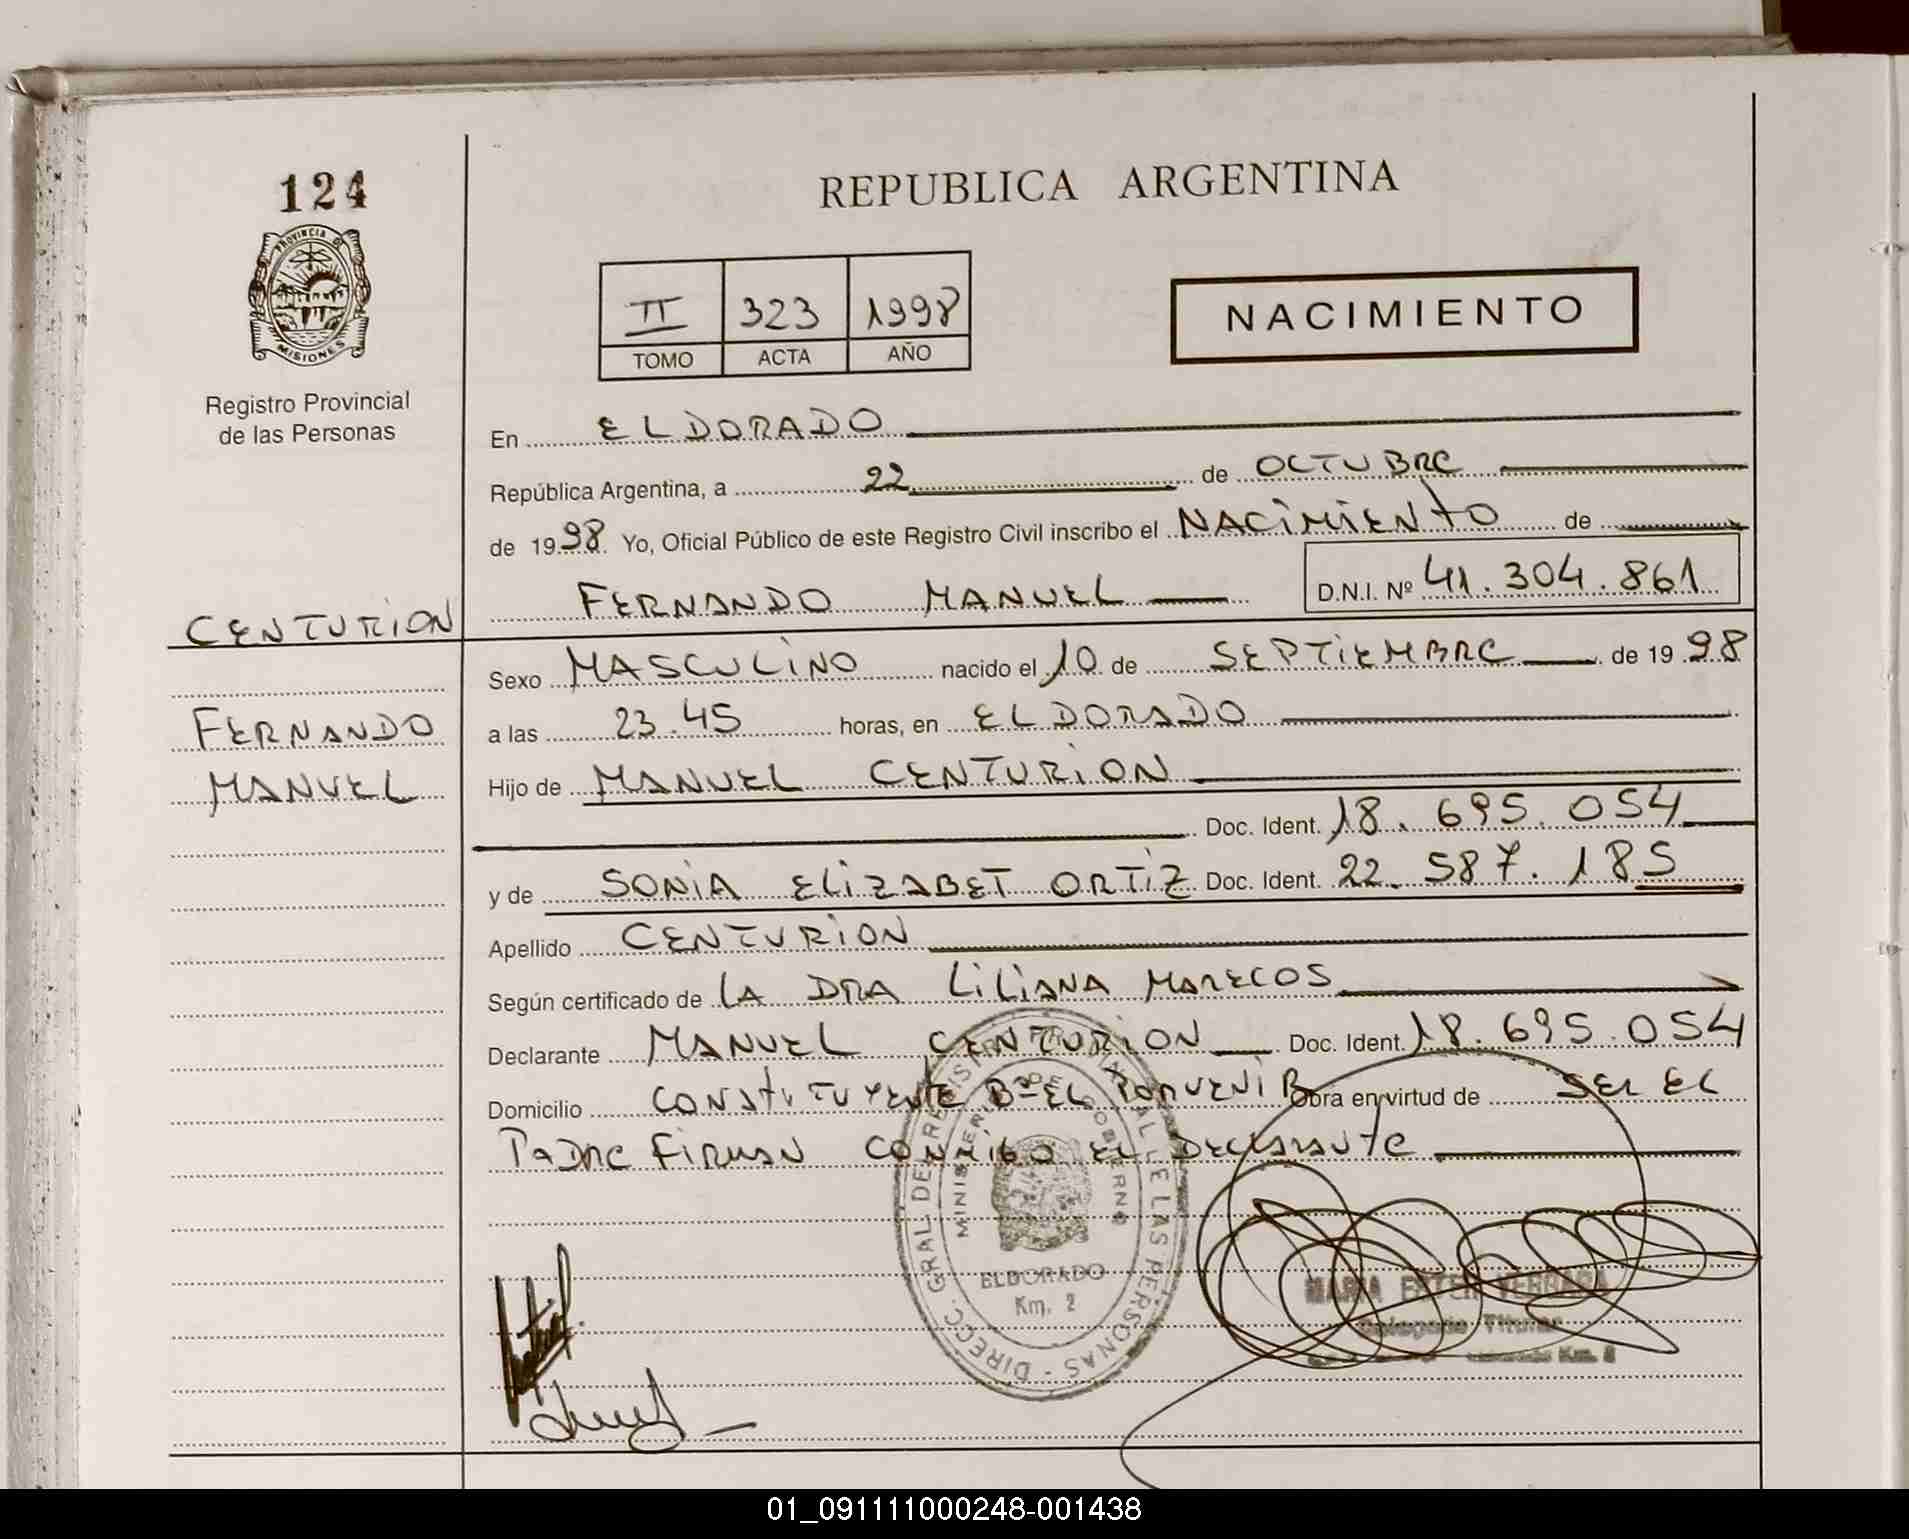 124
PROVINCIA DE
MISIONES
Registro Provincial
de las Personas
CENTURION
FERNANDO
MANUEL
REPUBLICA ARGENTINA
II 323 1998
TOMO ACTA AÑO
NACIMIENTO
En ELDORADO
República Argentina, a 22 de OCTUBRE
de 1998 Yo, Oficial Público de este Registro Civil inscribo el NACIMIENTO de
FERNANDO MANUEL D.N.I. Nº 41.304.861
Sexo MASCULINO nacido el 10 de SEPTIEMBRE de 1998
a las 23.45 horas, en ELDORADO
Hijo de MANUEL CENTURION
Doc. Ident. 18.695.054
y de SONIA ELIZABET ORTIZ Doc. Ident. 22.587.185
Apellido CENTURION
Según certificado de LA DRA LILIANA MARECOS
Declarante MANUEL CENTURION Doc. Ident. 18.695.054
Domicilio CONSTITUYENTE Bº EL PORVENIR Obra en virtud de SER EL
PADRE FIRMAN CONMIGO EL DECLARANTE
DIRECC. GRAL DE REGISTRO PROVINCIAL DE LAS PERSONAS
MINISTERIO DE GOBIERNO
ELDORADO
Km. 2
MARIA ESTER VERGARA
Delegada Titular
Km. 2
01_091111000248-001438